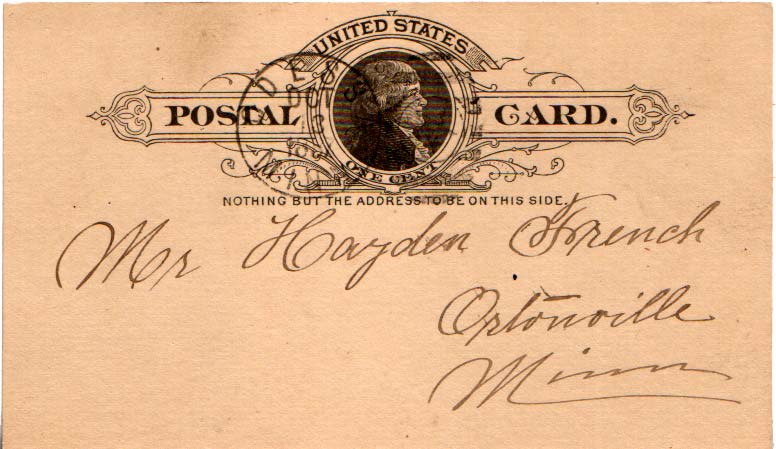 UNITED STATES
POSTAL CARD.
ONE CENT
NOTHING BUT THE ADDRESS TO BE ON THIS SIDE.
Mr Hayden French
Ortonville
Minn